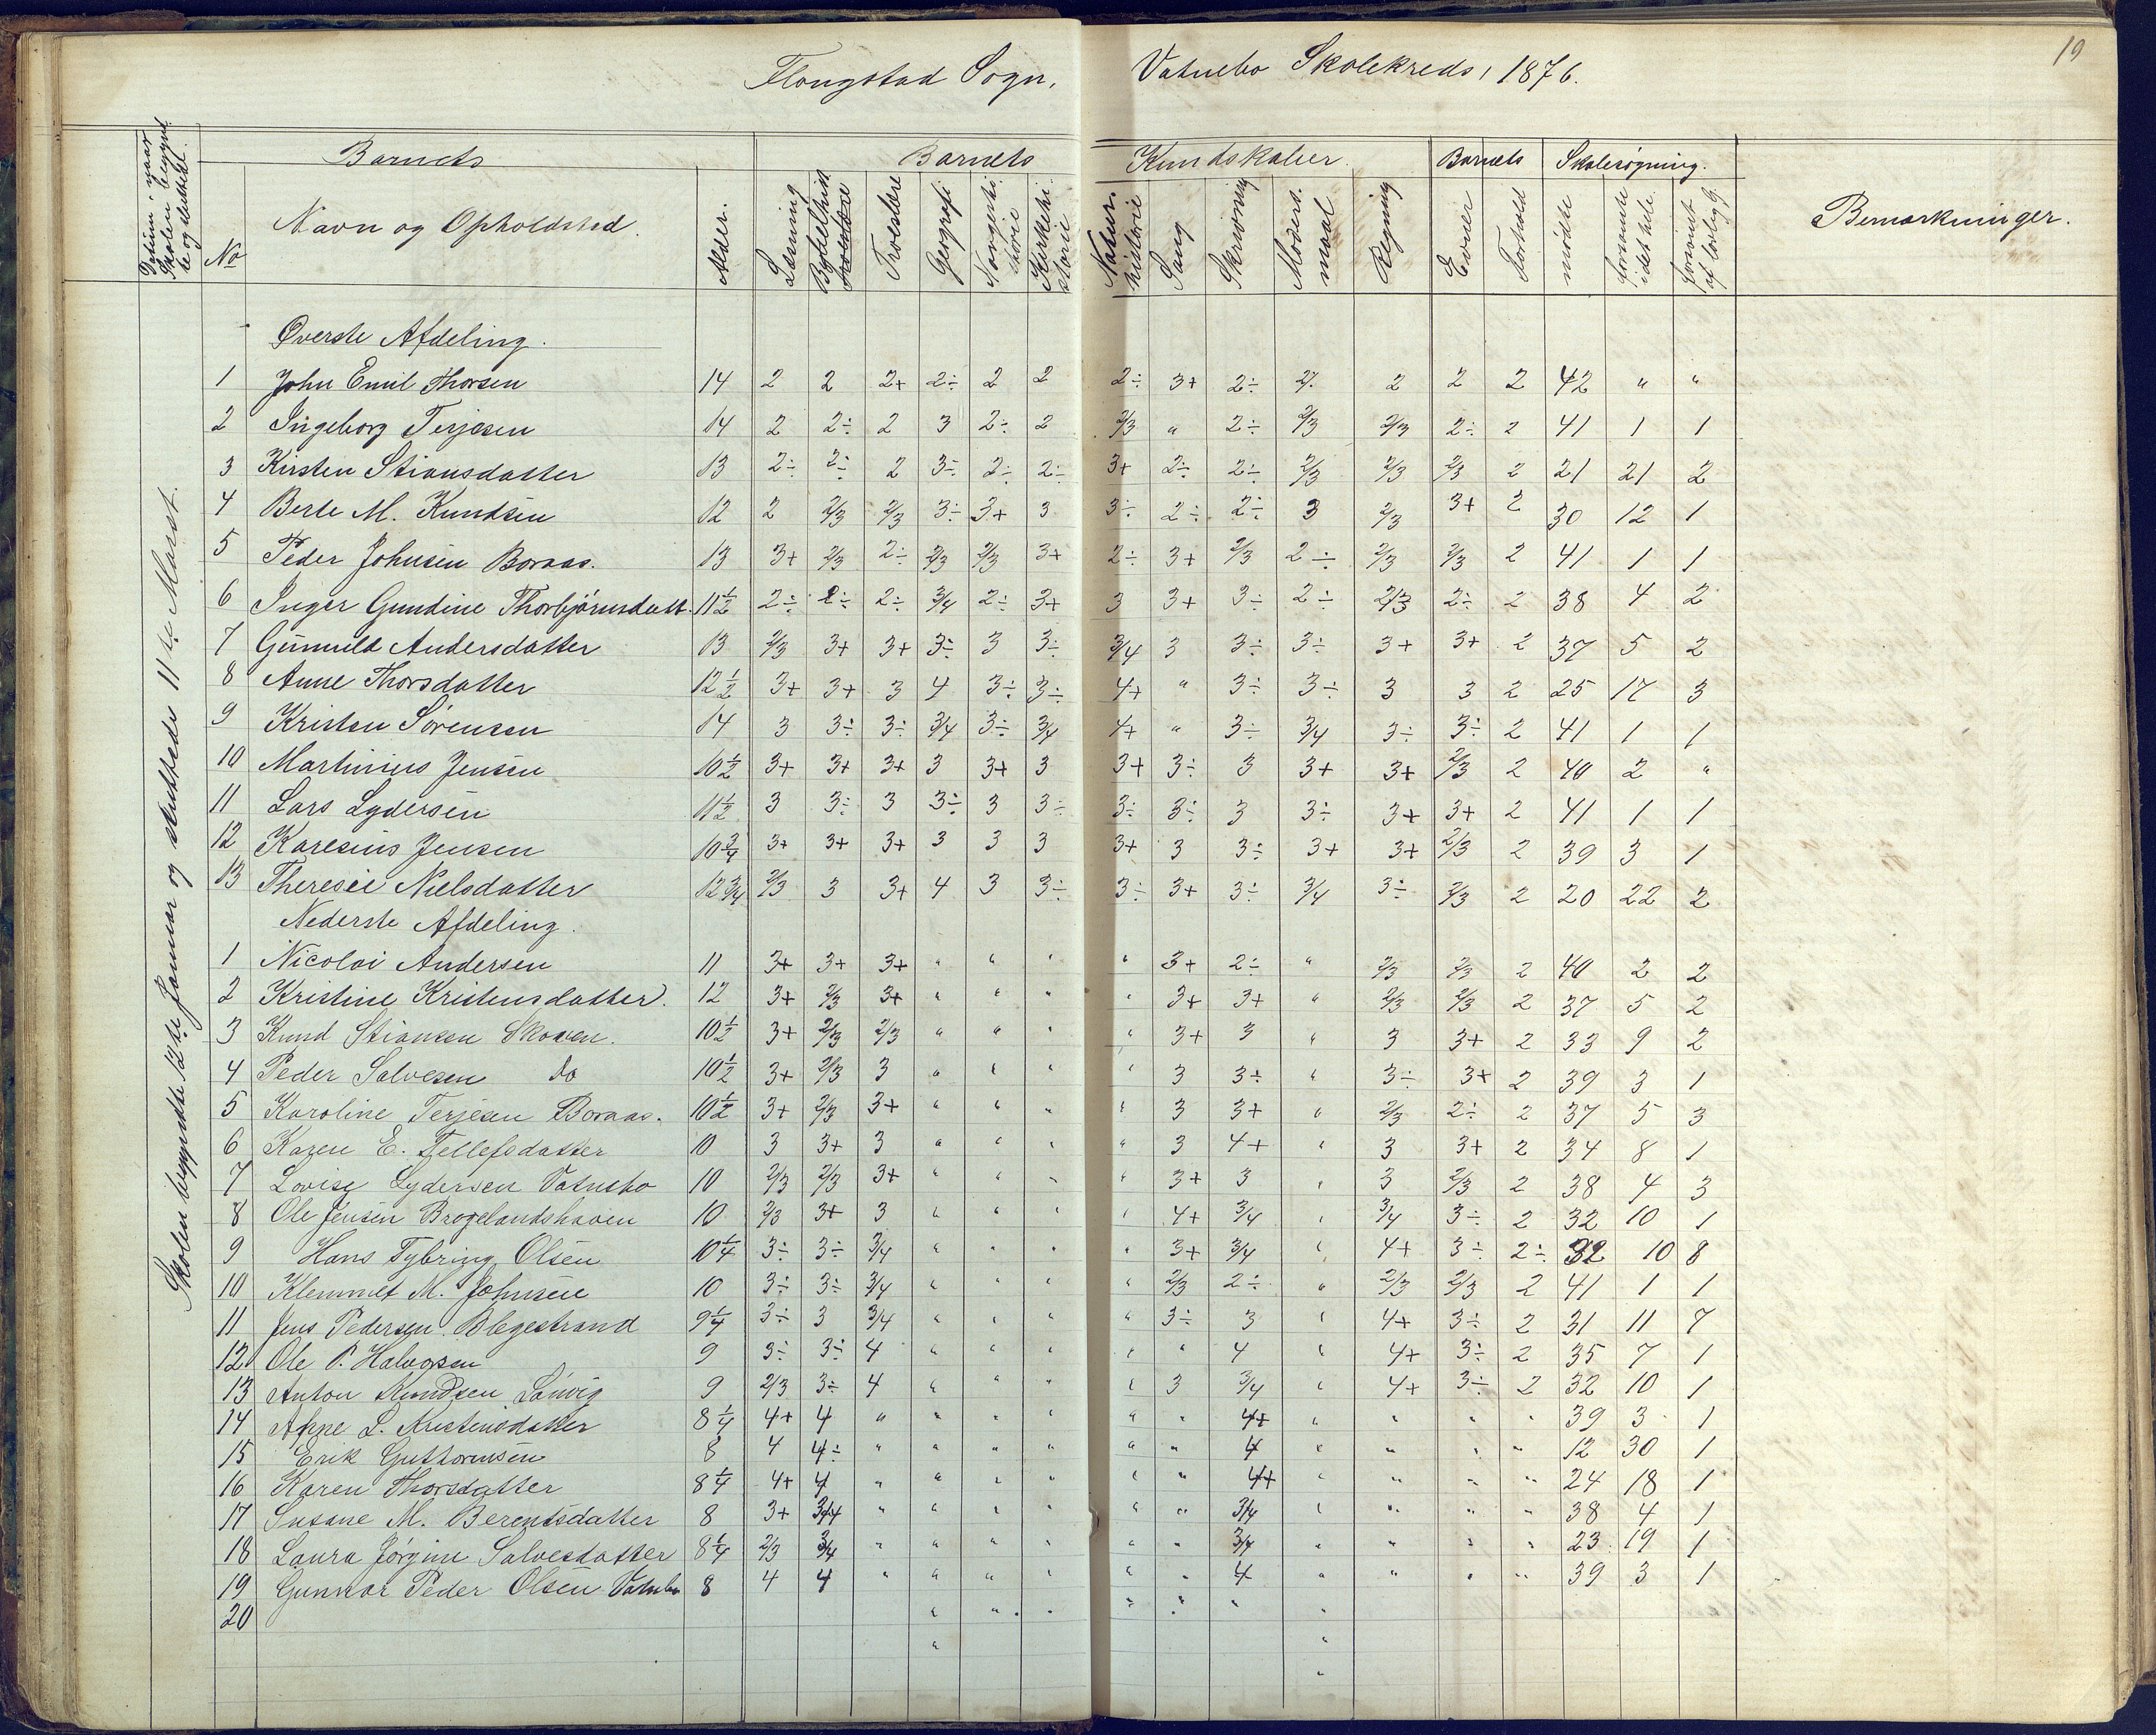 19
Flougstad Sogn, Vatnebo Skolekreds, 1876.
Datum, naar Skolen begynd- te og sluttet.
Barnets Barnets Kundskaber. Barnets Skolesøgning.
No Navn og Opholdsted. Alder. Læsning Bybelhist. Troeslære Geografi Norgeshi- storie Kirkehi- storie Natur- historie Sang Skrivning Moders- maal Regning Evner Forhold mødte forsømte i det hele forsømt af lovlig G. Bemærkninger.
Skolen begyndte 12te Januar og sluttede 11te Marst.
Øverste Afdeling.
1 John Emil Thorsen 14 2 2 2+ 2÷ 2 2 2÷ 3+ 2÷ 2÷ 2 2 2 42 " "
2 Ingeborg Terjesen 14 2 2÷ 2 3 2÷ 2 2/3 " 2÷ 2/3 2/3 2÷ 2 41 1 1
3 Kirsten Stiansdatter 13 2÷ 2÷ 2 3÷ 2÷ 2÷ 3+ 2÷ 2÷ 2/3 2/3 2/3 2 21 21 2
4 Berte M. Knudsen 12 2 2/3 2/3 3÷ 3+ 3 3÷ 2÷ 2÷ 3 2/3 3+ 2 30 12 1
5 Peder Johnsen Boraas. 13 3+ 2/3 2÷ 2/3 2/3 3+ 2÷ 3+ 2/3 2÷ 2/3 2/3 2 41 1 1
6 Inger Gundine Thorbjørnsdatt. 11 1/2 2÷ 2÷ 2÷ 3/4 2÷ 3+ 3 3+ 3÷ 2÷ 2/3 2÷ 2 38 4 2
7 Gunnild Andersdatter 13 2/3 3+ 3+ 3÷ 3 3÷ 3/4 3 3÷ 3÷ 3+ 3+ 2 37 5 2
8 Anne Thorsdatter 12 1/2 3+ 3+ 3 4 3÷ 3÷ 4+ " 3÷ 3÷ 3 3 2 25 17 3
9 Kristen Sørensen 14 3 3÷ 3÷ 3/4 3÷ 3/4 4+ " 3÷ 3/4 3÷ 3÷ 2 41 1 1
10 Martinius Jensen 10 1/2 3+ 3+ 3+ 3 3+ 3 3+ 3÷ 3 3+ 3+ 2/3 2 40 2 "
11 Lars Lydersen 11 1/2 3 3÷ 3 3÷ 3 3÷ 3÷ 3÷ 3 3÷ 3+ 3+ 2 41 1 1
12 Karesius Jensen 10 3/4 3+ 3+ 3+ 3 3 3 3+ 3 3÷ 3+ 3+ 2/3 2 39 3 1
13 Theresie Nielsdatter 12 3/4 2/3 3 3+ 4 3 3÷ 3÷ 3+ 3÷ 3/4 3÷ 2/3 2 20 22 2
Nederste Afdeling.
1 Nicolai Andersen 11 3+ 3+ 3+ " " " " 3+ 2÷ " 2/3 2/3 2 40 2 2
2 Kristine Kristensdatter. 12 3+ 2/3 3+ " " " " 3+ 3+ " 2/3 2/3 2 37 5 2
3 Knud Stiansen Skoven. 10 1/2 3+ 2/3 2/3 " " " " 3+ 3 " 3 3+ 2 33 9 2
4 Peder Salvesen do 10 1/2 3+ 2/3 3 " " " " 3 3÷ " 3÷ 3+ 2 39 3 1
5 Karoline Terjesen Boraas. 10 1/2 3+ 2/3 3+ " " " " 3 3+ " 2/3 2÷ 2 37 5 3
6 Karen E. Tellefsdatter 10 3 3+ 3 " " " " 3 4+ " 3 3+ 2 34 8 1
7 Lovise Lydersen Vatnebo 10 2/3 2/3 3+ " " " " 3+ 3 " 3 2/3 2 38 4 3
8 Ole Jensen Brogelandshaven 10 2/3 3+ 3 " " " " 4+ 3/4 " 3/4 3÷ 2 32 10 1
9 Hans Tybring Olsen 10 1/4 3÷ 3÷ 3/4 " " " " 3+ 3/4 " 4+ 3÷ 2÷ 32 10 8
10 Klemmet M. Johnsen 10 3÷ 3÷ 3/4 " " " " 2/3 2÷ " 2/3 2/3 2 41 1 1
11 Jens Pedersen Blegestrand 9 1/4 3÷ 3 3/4 " " " " 3÷ 3 " 4+ 3÷ 2 31 11 7
12 Ole P. Halvorsen 9 3÷ 3÷ 4 " " " " " 4 " 4+ 3÷ 2 35 7 1
13 Anton Knudsen Lønvig 9 2/3 3÷ 4 " " " " 3 3/4 " 4+ 3÷ 2 32 10 1
14 Anne L. Kristensdatter 8 1/4 4+ 4 " " " " " " 4+ " " " " 39 3 1
15 Erik Guthormsen 8 4 4÷ " " " " " " 4 " " " " 12 30 1
16 Karen Thorsdatter 8 1/4 4+ 4 " " " " " " 4+ " " " " 24 18 1
17 Susane M. Berentsdatter 8 3+ 3/4 " " " " " " 3/4 " " " " 38 4 1
18 Laura Jørgine Salvesdatter 8 1/4 2/3 3/4 " " " " " " 3/4 " " " " 23 19 1
19 Gunnar Peder Olsen Vatnebo 8 4 4 " " " " " " 4 " " " " 39 3 1
20 " " " " " " "
" "
"